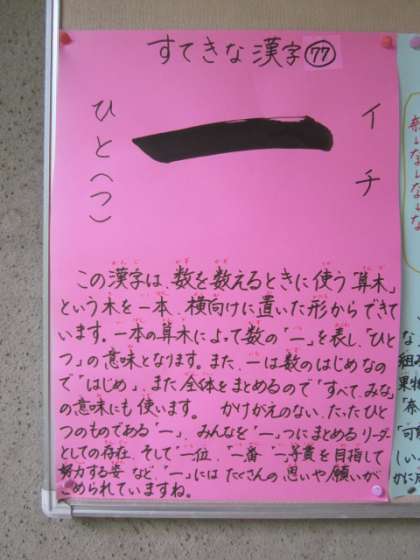 すてきな漢字 77
イチ
一
ひと(つ)
この漢字は、数を数えるときに使う「算木」
という木を一本、横向けに置いた形からできて
います。一本の算木によって数の「一」を表し、「ひと
つ」の意味となります。また、一は数のはじめなの
で「はじめ」、また全体をまとめるので「すべて、みな」
の意味にも使います。 かけがえのない、たったひと
つのものである「一」、みんなを「一」つにまとめるリーダー
としての存在、そして「一位、一番、一等賞」を目指して
努力する姿など、「一」にはたくさんの思いや願いが
こめられていますね。